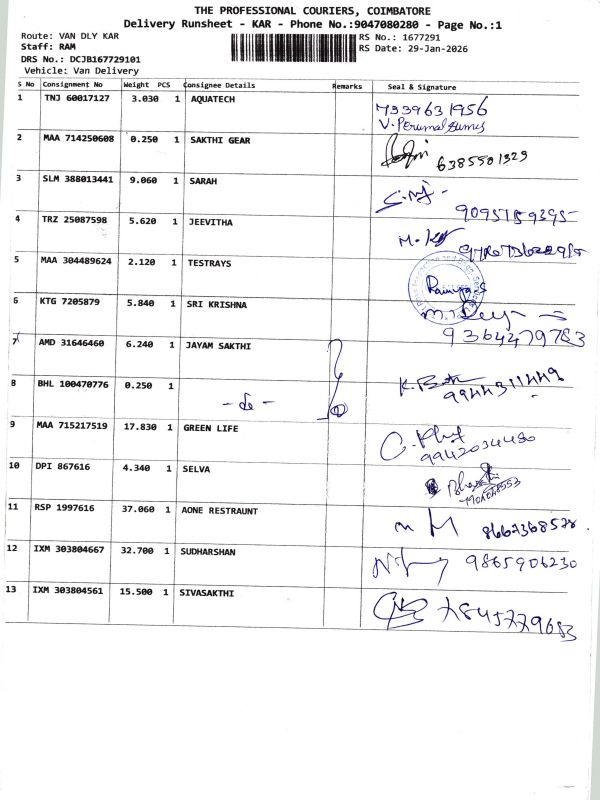 THE PROFESSIONAL COURIERS, COIMBATORE
Delivery Runsheet - KAR - Phone No.:9047080280 - Page No.:1
Route: VAN DLY KAR
RS No.: 1677291
Staff: RAM
RS Date: 29-Jan-2026
DRS No.: DCJB167729101
Vehicle: Van Delivery
S No Consignment No Weight PCS Consignee Details Remarks Seal & Signature
1 TNJ 60017127 3.030 1 AQUATECH 7339631956
2 MAA 714250608 0.250 1 SAKTHI GEAR 6385501329
3 SLM 388013441 9.060 1 SARAH
4 TRZ 25087598 5.620 1 JEEVITHA
5 MAA 304489624 2.120 1 TESTRAYS
6 KTG 7205879 5.840 1 SRI KRISHNA 9364479783
7 AMD 31646460 6.240 1 JAYAM SAKTHI
8 BHL 100470776 0.250 1 - do - 9944311449
9 MAA 715217519 17.830 1 GREEN LIFE 9942034480
10 DPI 867616 4.340 1 SELVA
11 RSP 1997616 37.060 1 AONE RESTRAUNT 8667368578
12 IXM 303804667 32.700 1 SUDHARSHAN 9865906230
13 IXM 303804561 15.500 1 SIVASAKTHI 7845779683